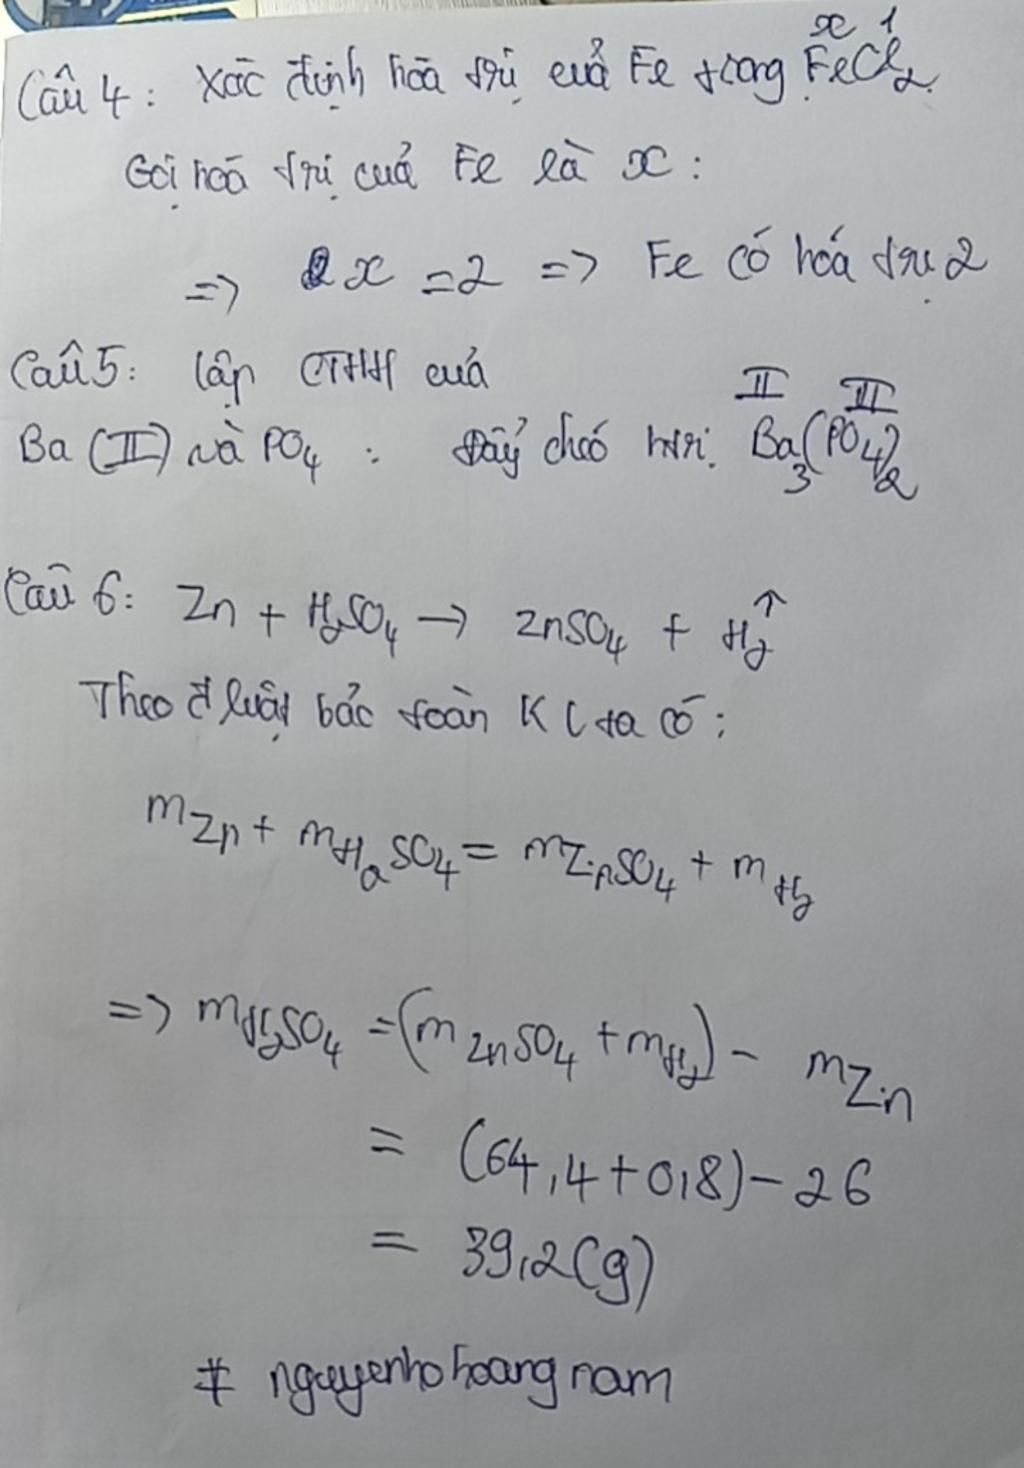 x 1
Câu 4: Xác định hóa trị của Fe trong FeCl2.
Gọi hoá trị của Fe là x:
=> x = 2 => Fe có hóa trị 2
Câu 5: Lập CTHH của
II III
Ba (II) và PO4 : Đẩy chéo htrị. Ba3(PO4)2
Câu 6: Zn + H2SO4 → ZnSO4 + H2↑
Theo đ luật bảo toàn KL ta có:
mZn + mH2SO4 = mZnSO4 + mH2
=> mH2SO4 = (mZnSO4 + mH2) - mZn
= (64,4 + 0,8) - 26
= 39,2 (g)
# nguyenhohoangnam